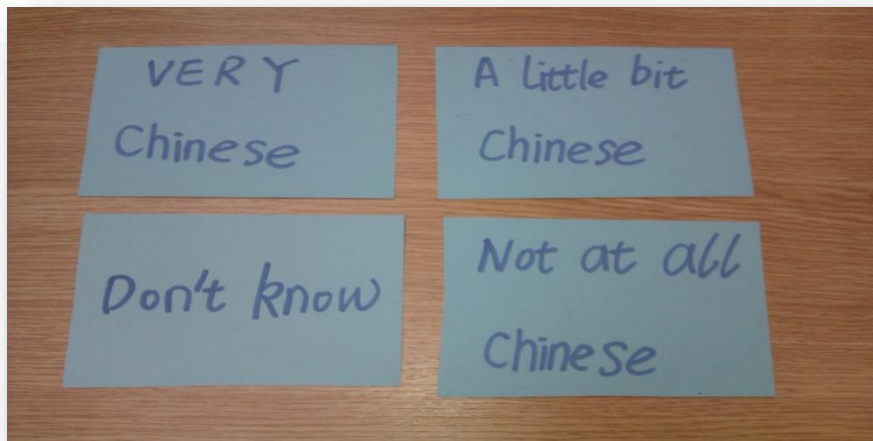 VERY
Chinese
A little bit
Chinese
Don't know
Not at all
Chinese